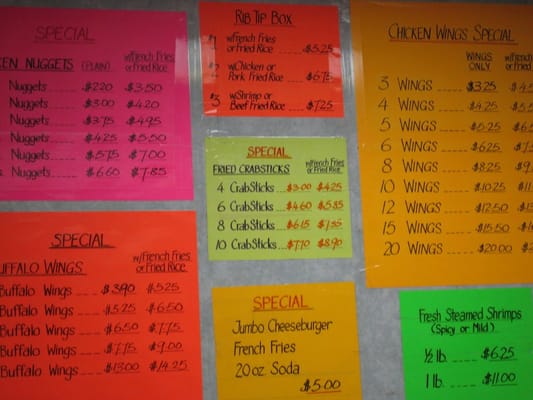 SPECIAL
KEN NUGGETS (PLAIN) w/French Fries or Fried Rice
Nuggets $2.20 $3.50
Nuggets $3.00 $4.20
Nuggets $3.75 $4.95
Nuggets $4.25 $5.50
Nuggets $5.75 $7.00
Nuggets $6.60 $7.85
SPECIAL
UFFALO WINGS w/French Fries or Fried Rice
Buffalo Wings $3.90 $5.25
Buffalo Wings $5.25 $6.50
Buffalo Wings $6.50 $7.75
Buffalo Wings $7.75 $9.00
Buffalo Wings $13.00 $14.25
RIB TIP BOX
#1 w/French Fries or Fried Rice $5.25
#2 w/Chicken or Pork Fried Rice $6.75
#3 w/Shrimp or Beef Fried Rice $7.25
SPECIAL
FRIED CRABSTICKS w/French Fries or Fried Rice
4 CrabSticks $3.00 $4.25
6 CrabSticks $4.60 $5.85
8 CrabSticks $6.15 $7.35
10 CrabSticks $7.70 $8.90
SPECIAL
Jumbo Cheeseburger
French Fries
20 oz. Soda
$5.00
CHICKEN WINGS SPECIAL
WINGS ONLY w/French or Fried
3 WINGS $3.25
4 WINGS $4.25
5 WINGS $5.25
6 WINGS $6.25
8 WINGS $8.25
10 WINGS $10.25
12 WINGS $12.50
15 WINGS $15.50
20 WINGS $20.00
Fresh Steamed Shrimps
(Spicy or Mild)
½ lb. $6.25
1 lb. $11.00